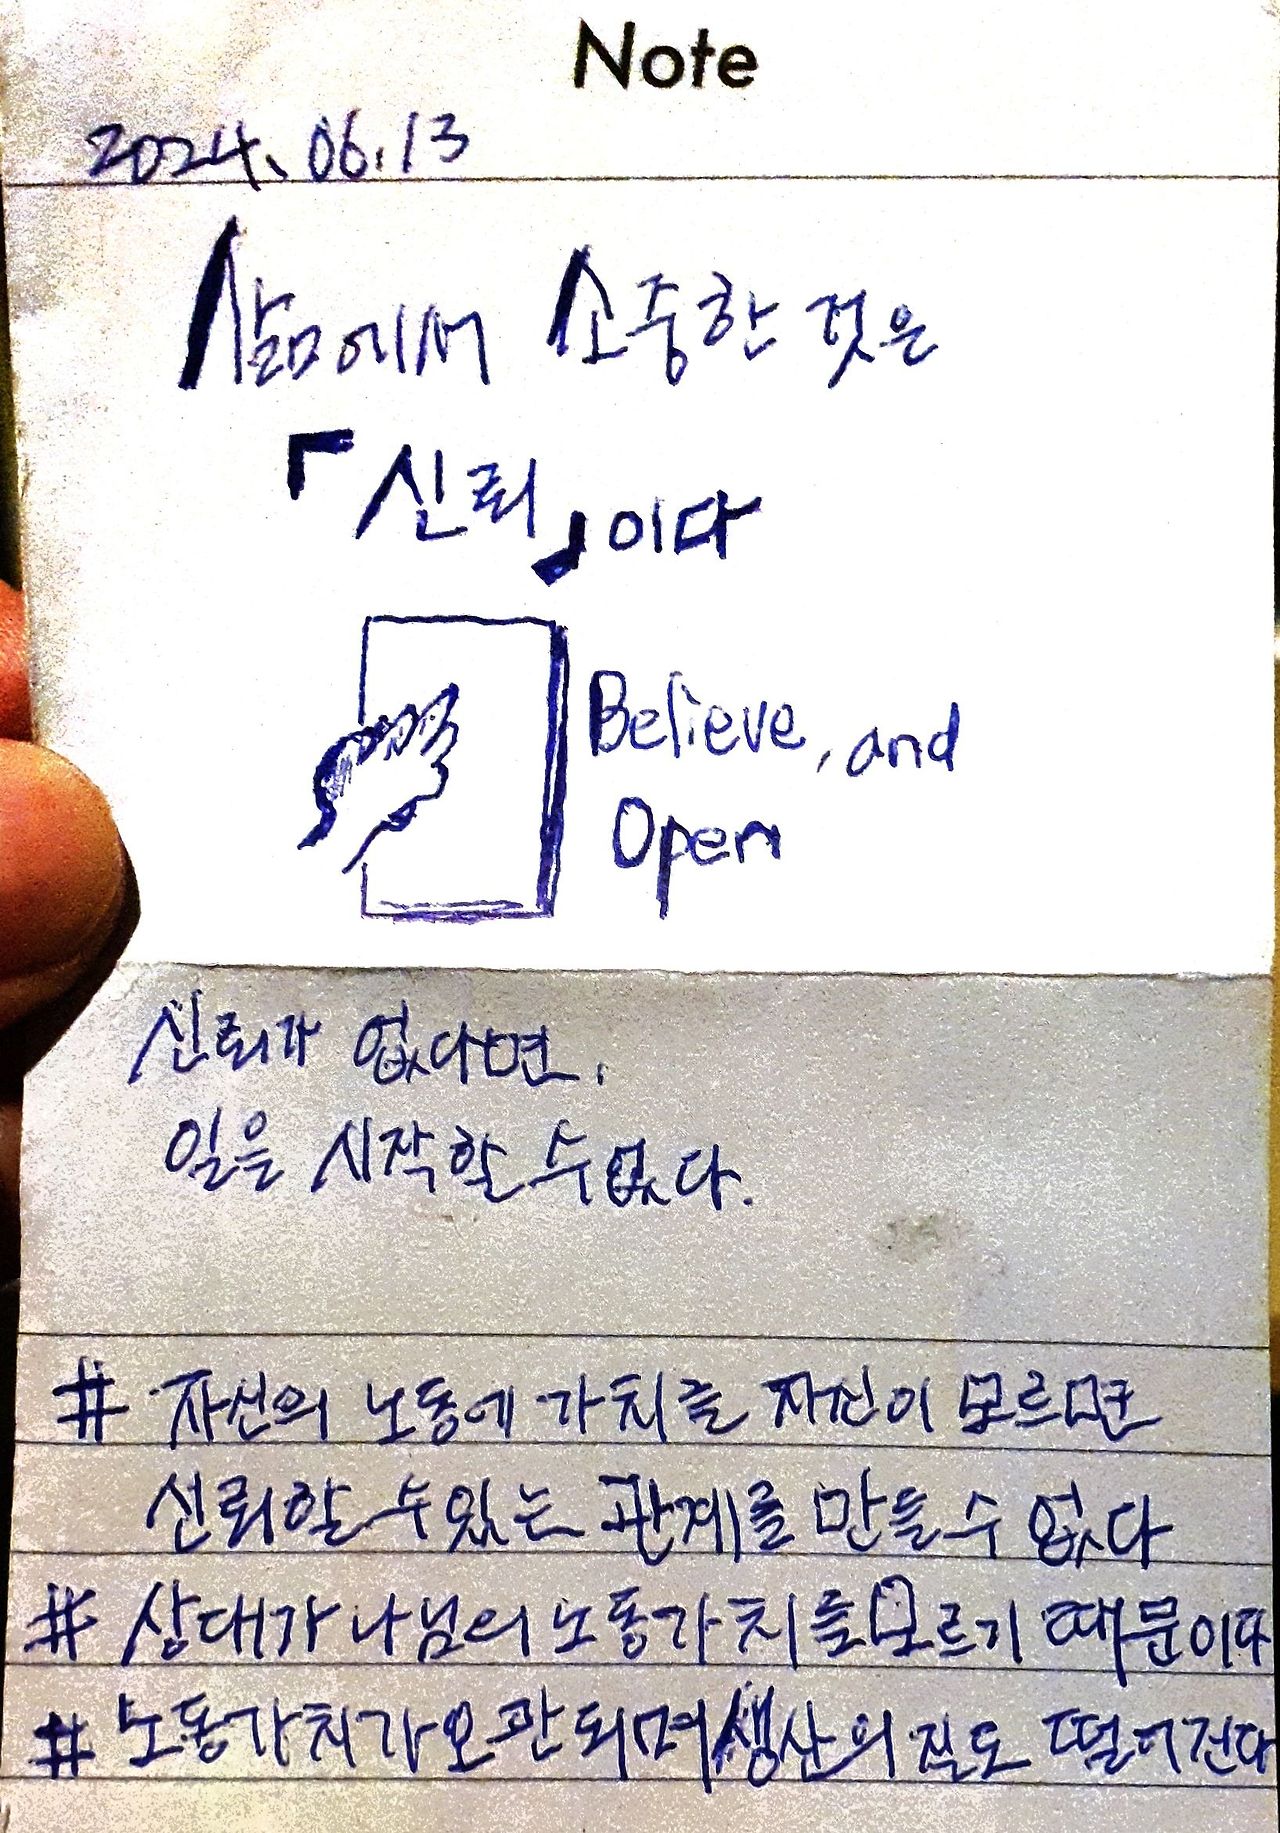 Note
2024. 06. 13
삶에서 소중한 것은
「신뢰」이다
Believe, and
Open
신뢰가 없다면,
일을 시작할 수 없다.
# 자신의 노동에 가치를 자신이 모르면
신뢰할 수 있는 관계를 만들 수 없다
# 상대가 나님의 노동가치를 모르기 때문이다
# 노동가치가 오판되며 생산의 질도 떨어진다